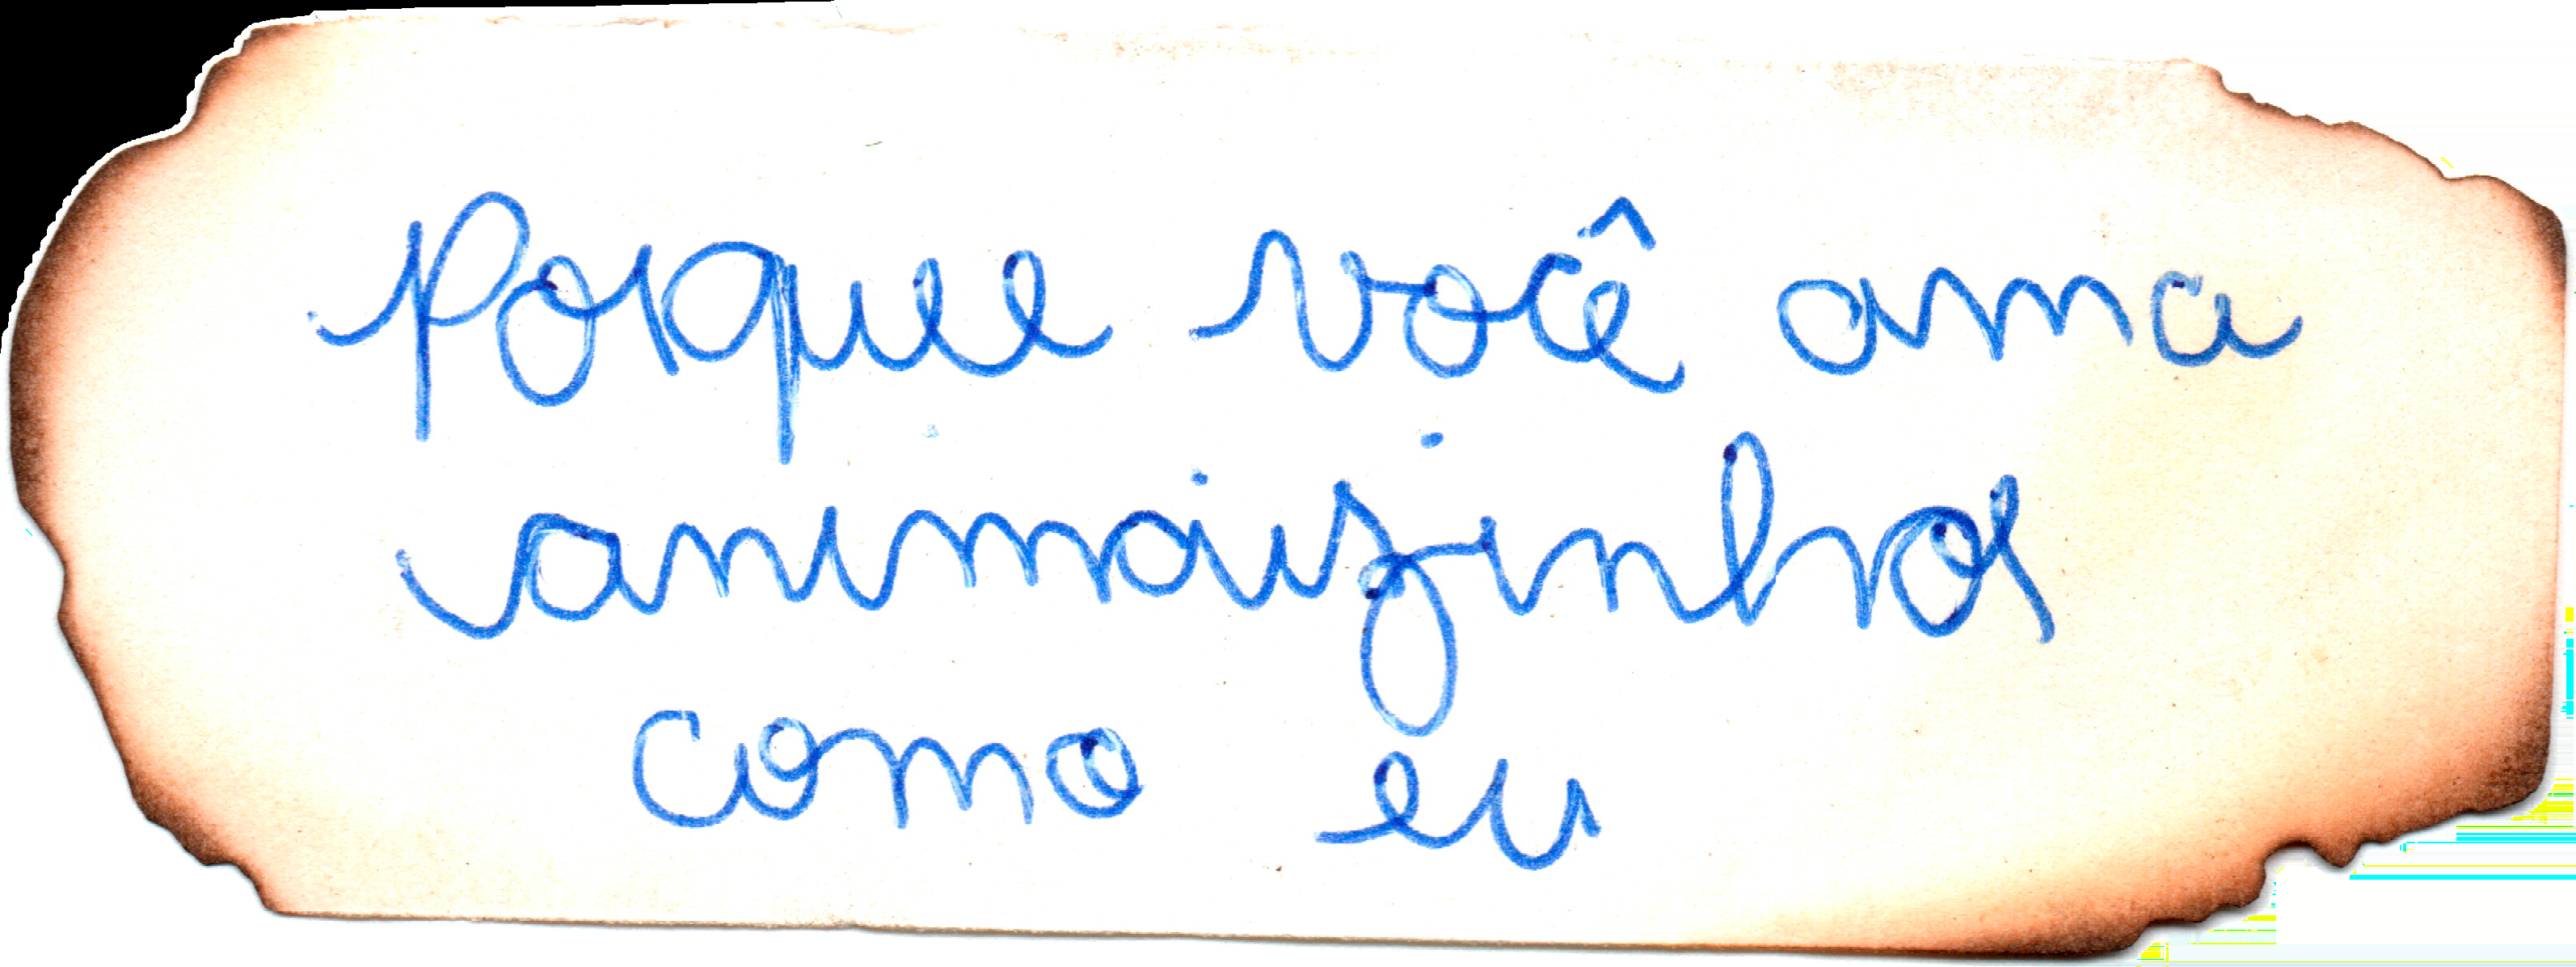 Porque você ama
animaizinhos
como eu